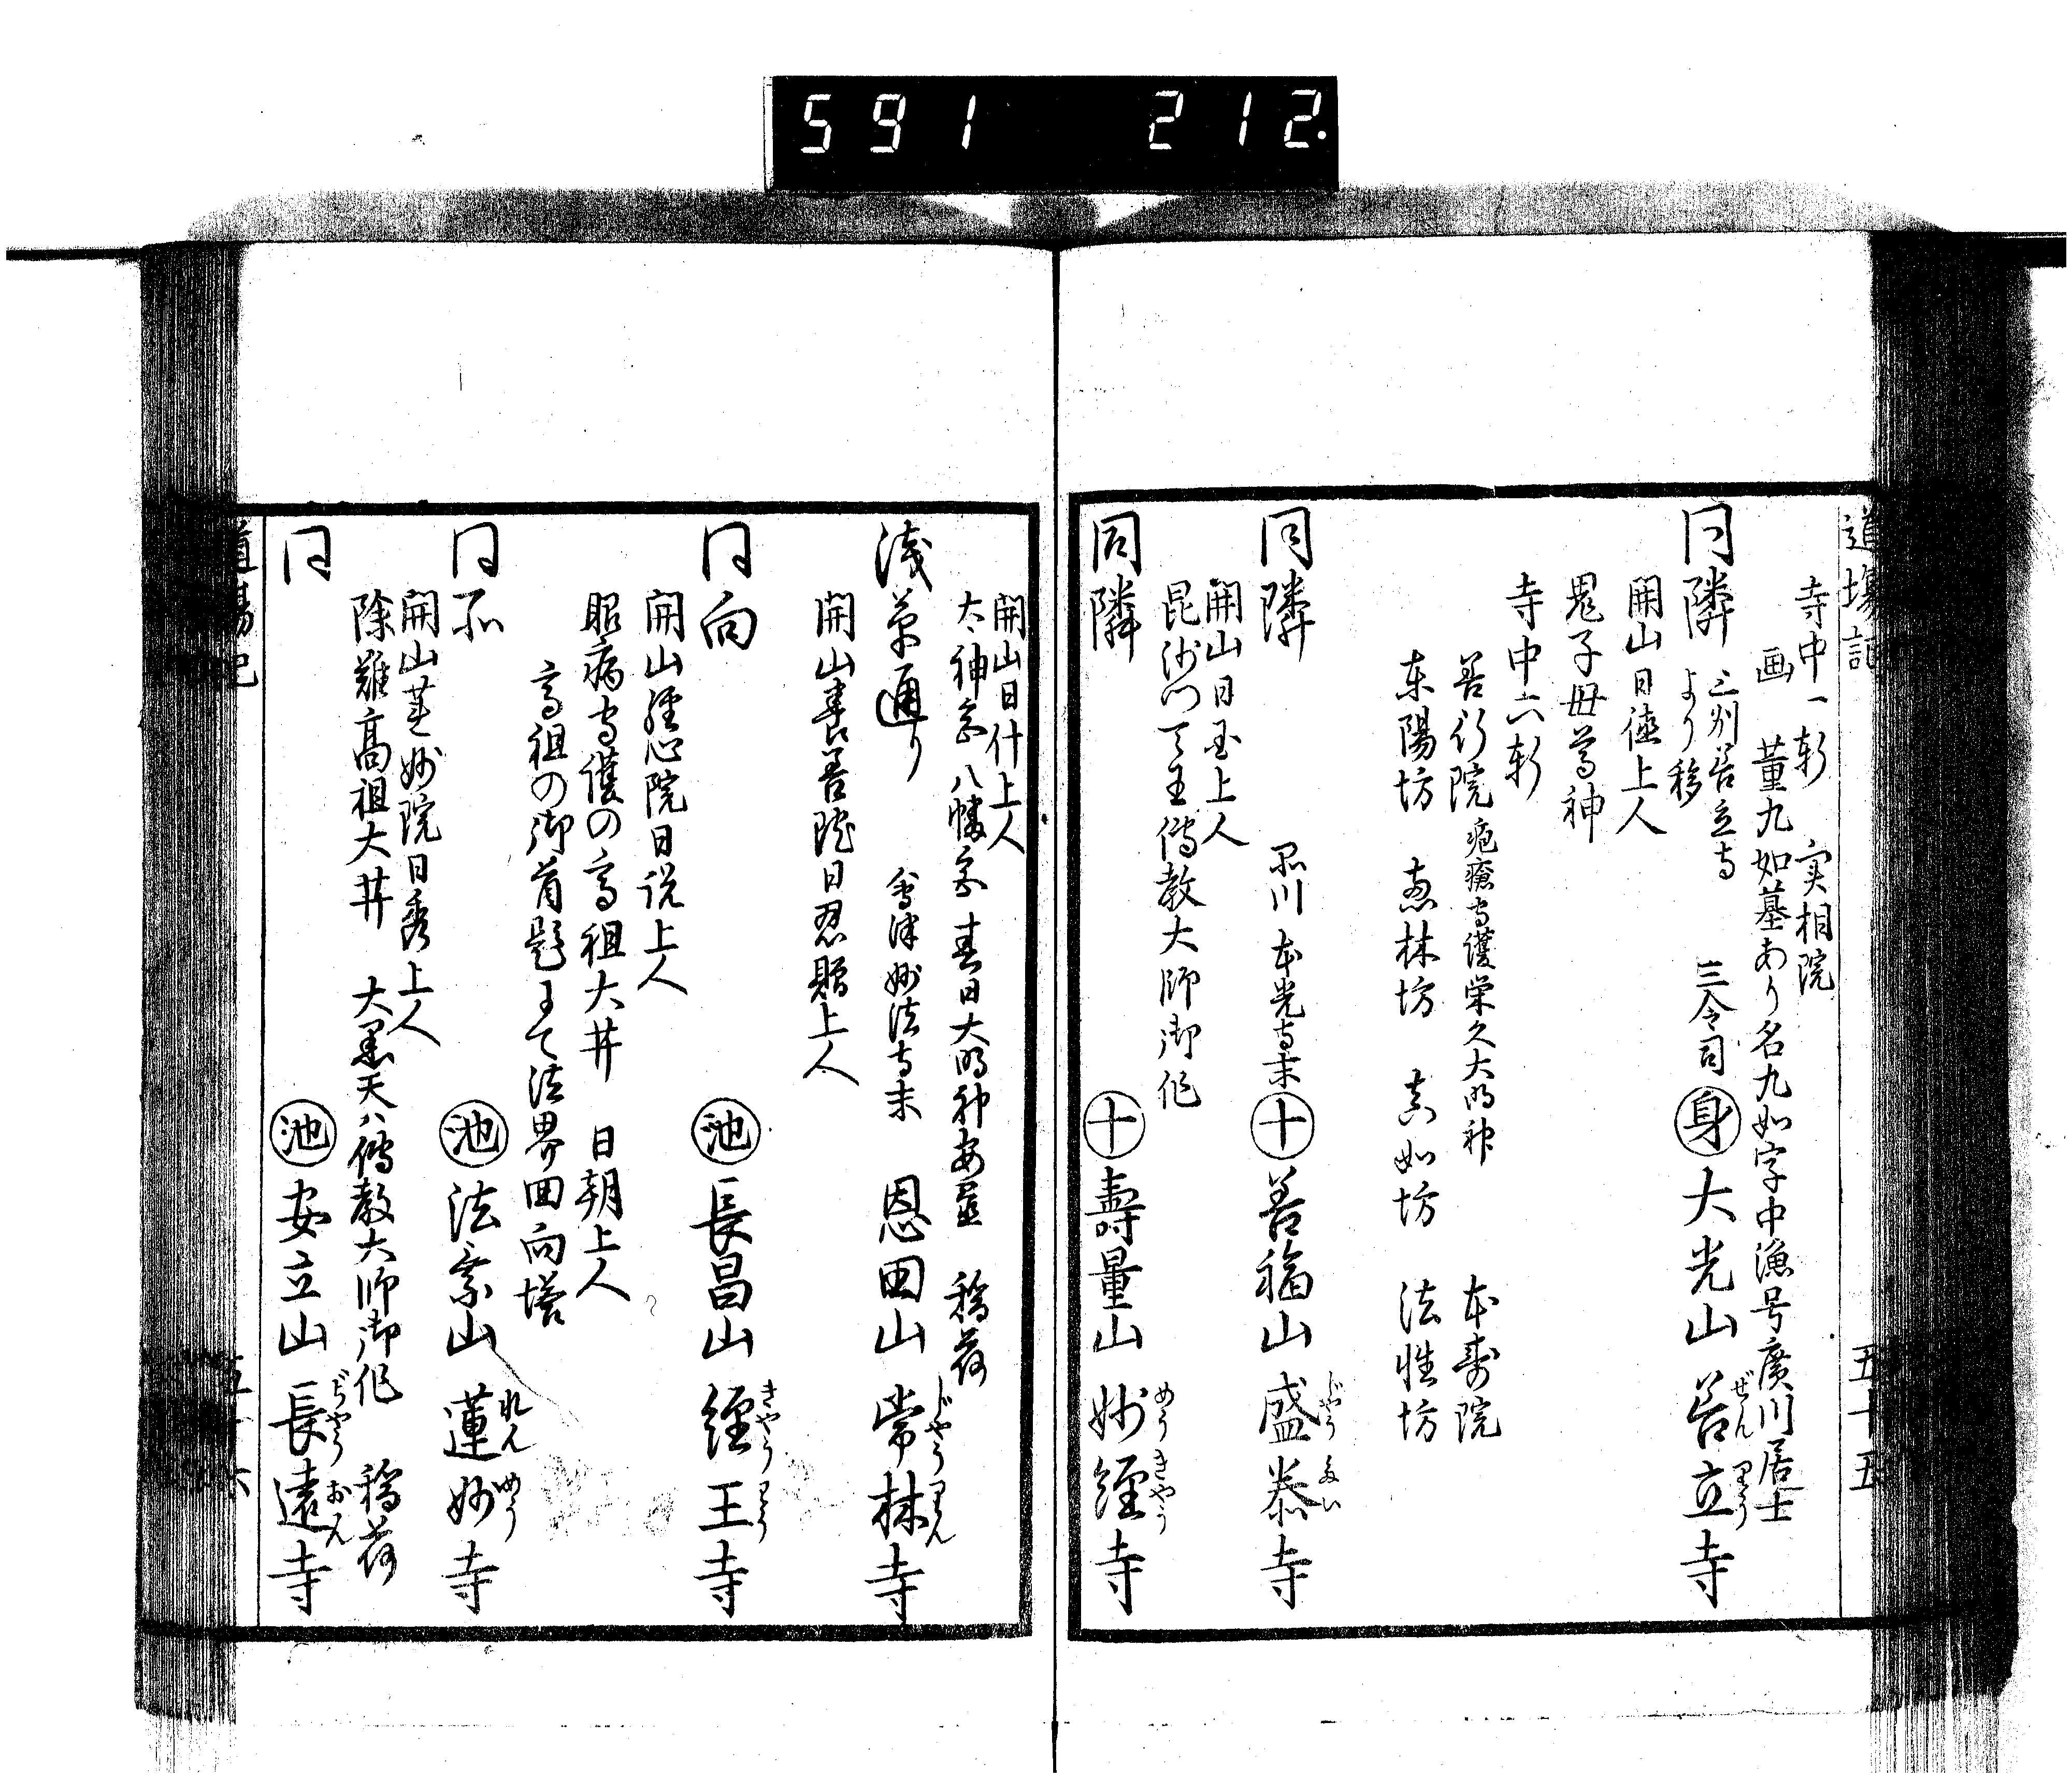 591 212.
道場記
五十五
寺中一軒 実相院
画 董九如墓あり名九如字中漁号廣川居士
同隣 三州善立寺より移 三令司 身 大光山 善立寺
ぜん りう
開山日 上人
鬼子母尊神
寺中六軒
善行院 疱瘡守護栄久大明神 本寿院
東陽坊 恵林坊 真如坊 法性坊
同隣 品川 本光寺末 十 善福山 盛泰寺
じやう たい
開山日 上人
毘沙門天王傳教大師御作
同隣 十 壽量山 妙經寺
めうきやう
開山日什上人
太神宮 八幡宮 春日大明神安置 稲荷
浅草通り 会津妙法寺末 恩田山 常林寺
じやうりん
開山長善院日忍贈上人
同向 池 長昌山 經王寺
きやう わう
開山 院日説上人
眼病守護の高祖大井 日朝上人
高祖の御首題 て法界回向塔
同 池 法 山 蓮妙寺
れんめう
開山蓮妙院日秀上人
除難高祖大井 大黒天ハ傳教大師御作 稲荷
同 池 安立山 長遠寺
ぢやうおん
道場記
五十六